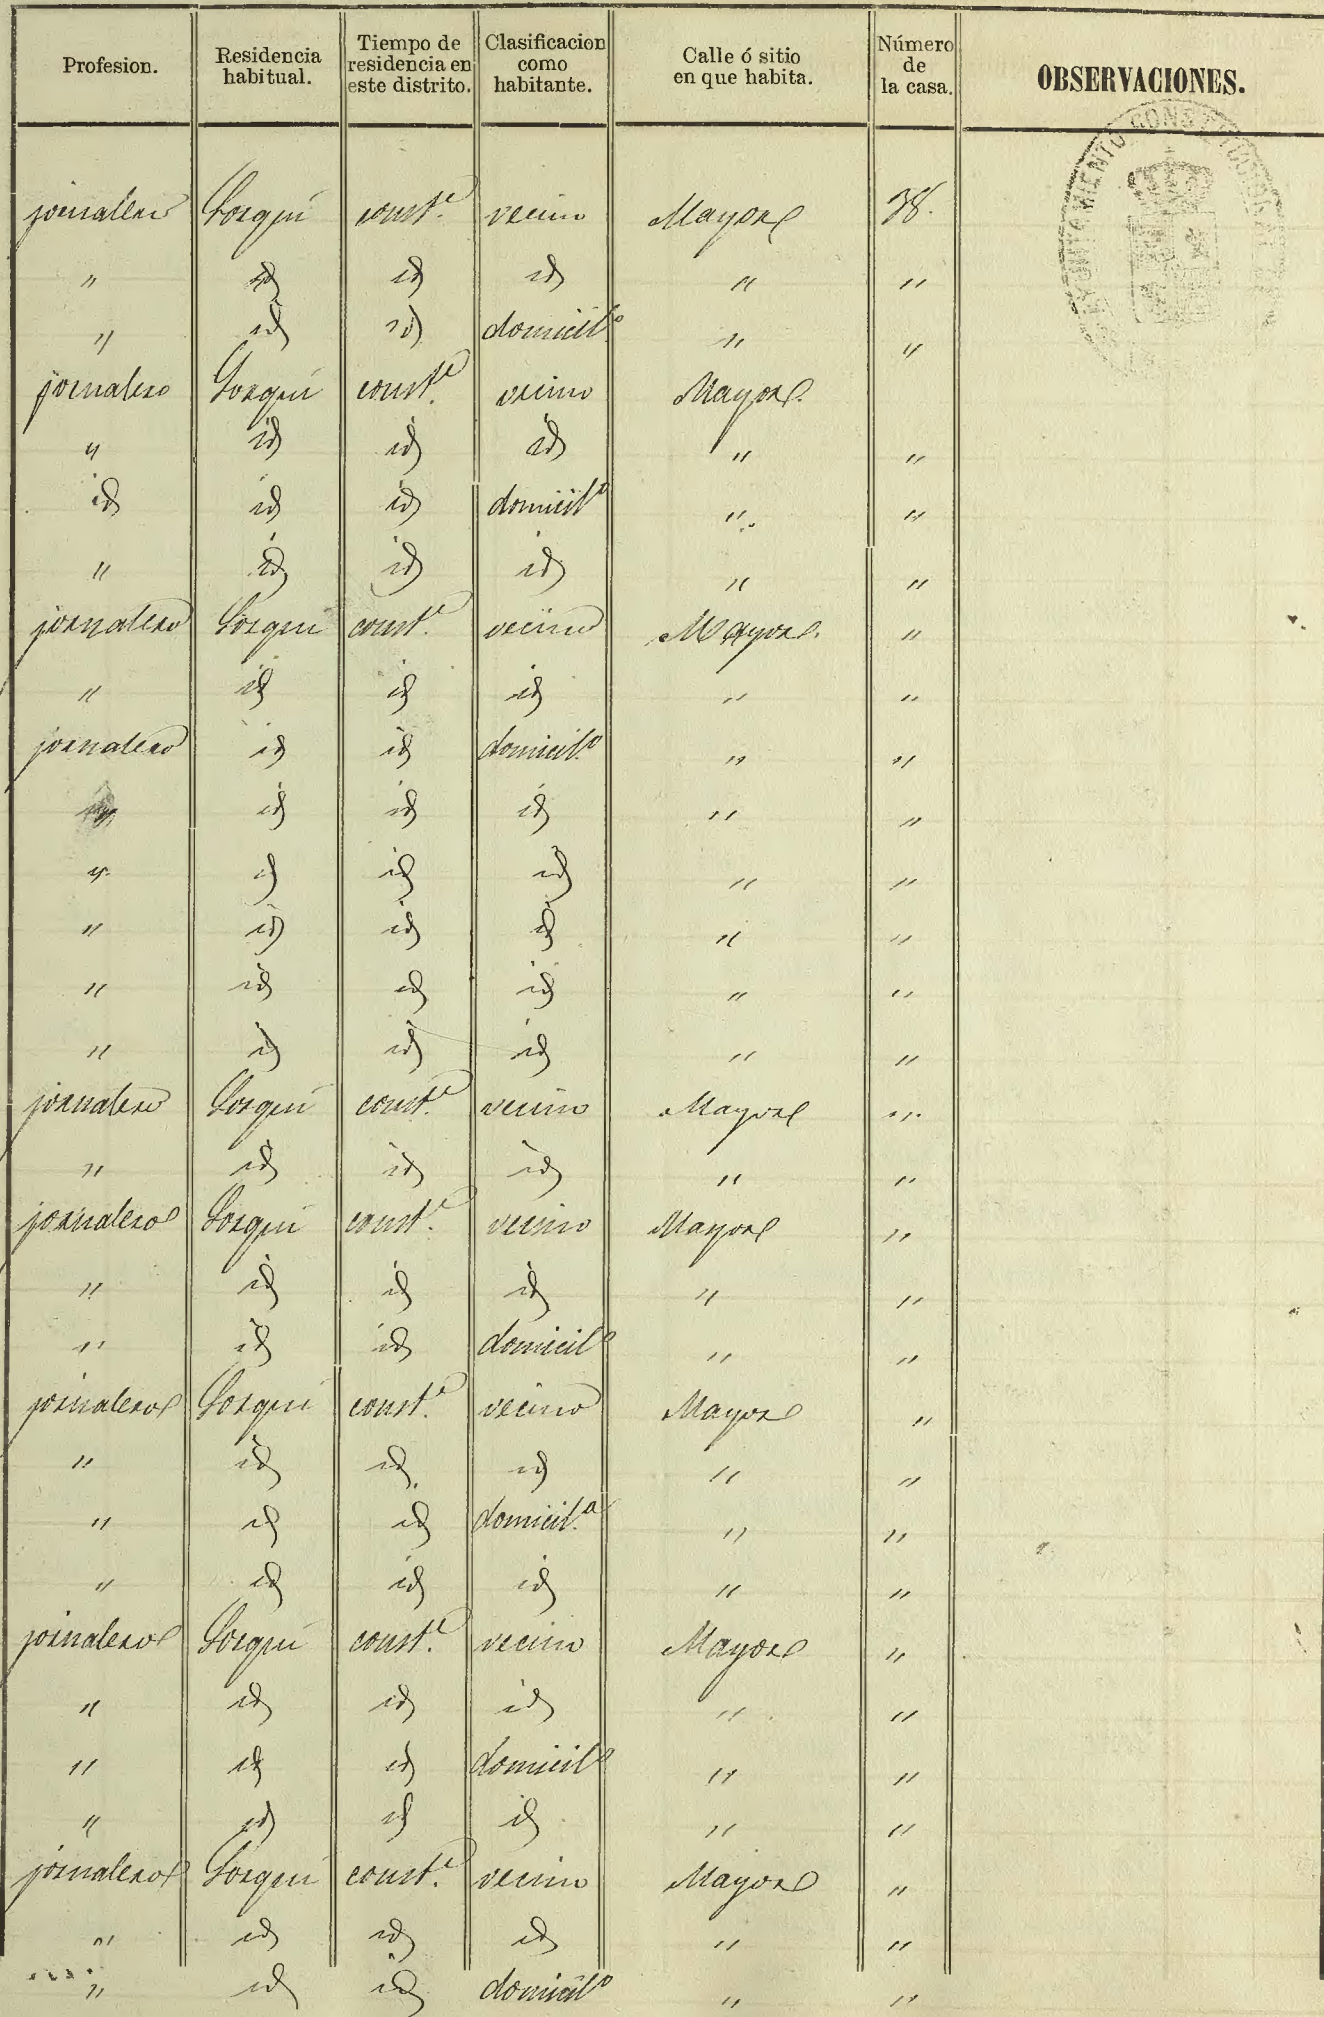 Profesion. Residencia habitual. Tiempo de residencia en este distrito. Clasificacion como habitante. Calle ó sitio en que habita. Número de la casa. OBSERVACIONES.
AYUNTAMIENTO CONSTITUCIONAL
jornalero Lorquí const.e vecino Mayor 38.
" id id id " "
" id id domicil.o " "
jornalero Lorquí const.e vecino Mayor.
" id id id " "
id id id domicil.o " "
" id id id " "
jornalero Lorquí const.e vecino Mayor. "
" id id id " "
jornalero id id domicil.o " "
id id id " "
" id id id " "
" id id id " "
" id id id " "
" id id id " "
jornalero Lorquí const.e vecino Mayor "
" id id id " "
jornalero Lorquí const.e vecino Mayor "
" id id id " "
" id id domicil.o " "
jornalero Lorquí const.e vecino Mayor "
" id id id " "
" id id domicil.a " "
" id id id " "
jornalero Lorquí const.e vecino Mayor "
" id id id " "
" id id domicil.o " "
" id id id " "
jornalero Lorquí const.e vecino Mayor "
" id id id " "
" id id domicil.o " "